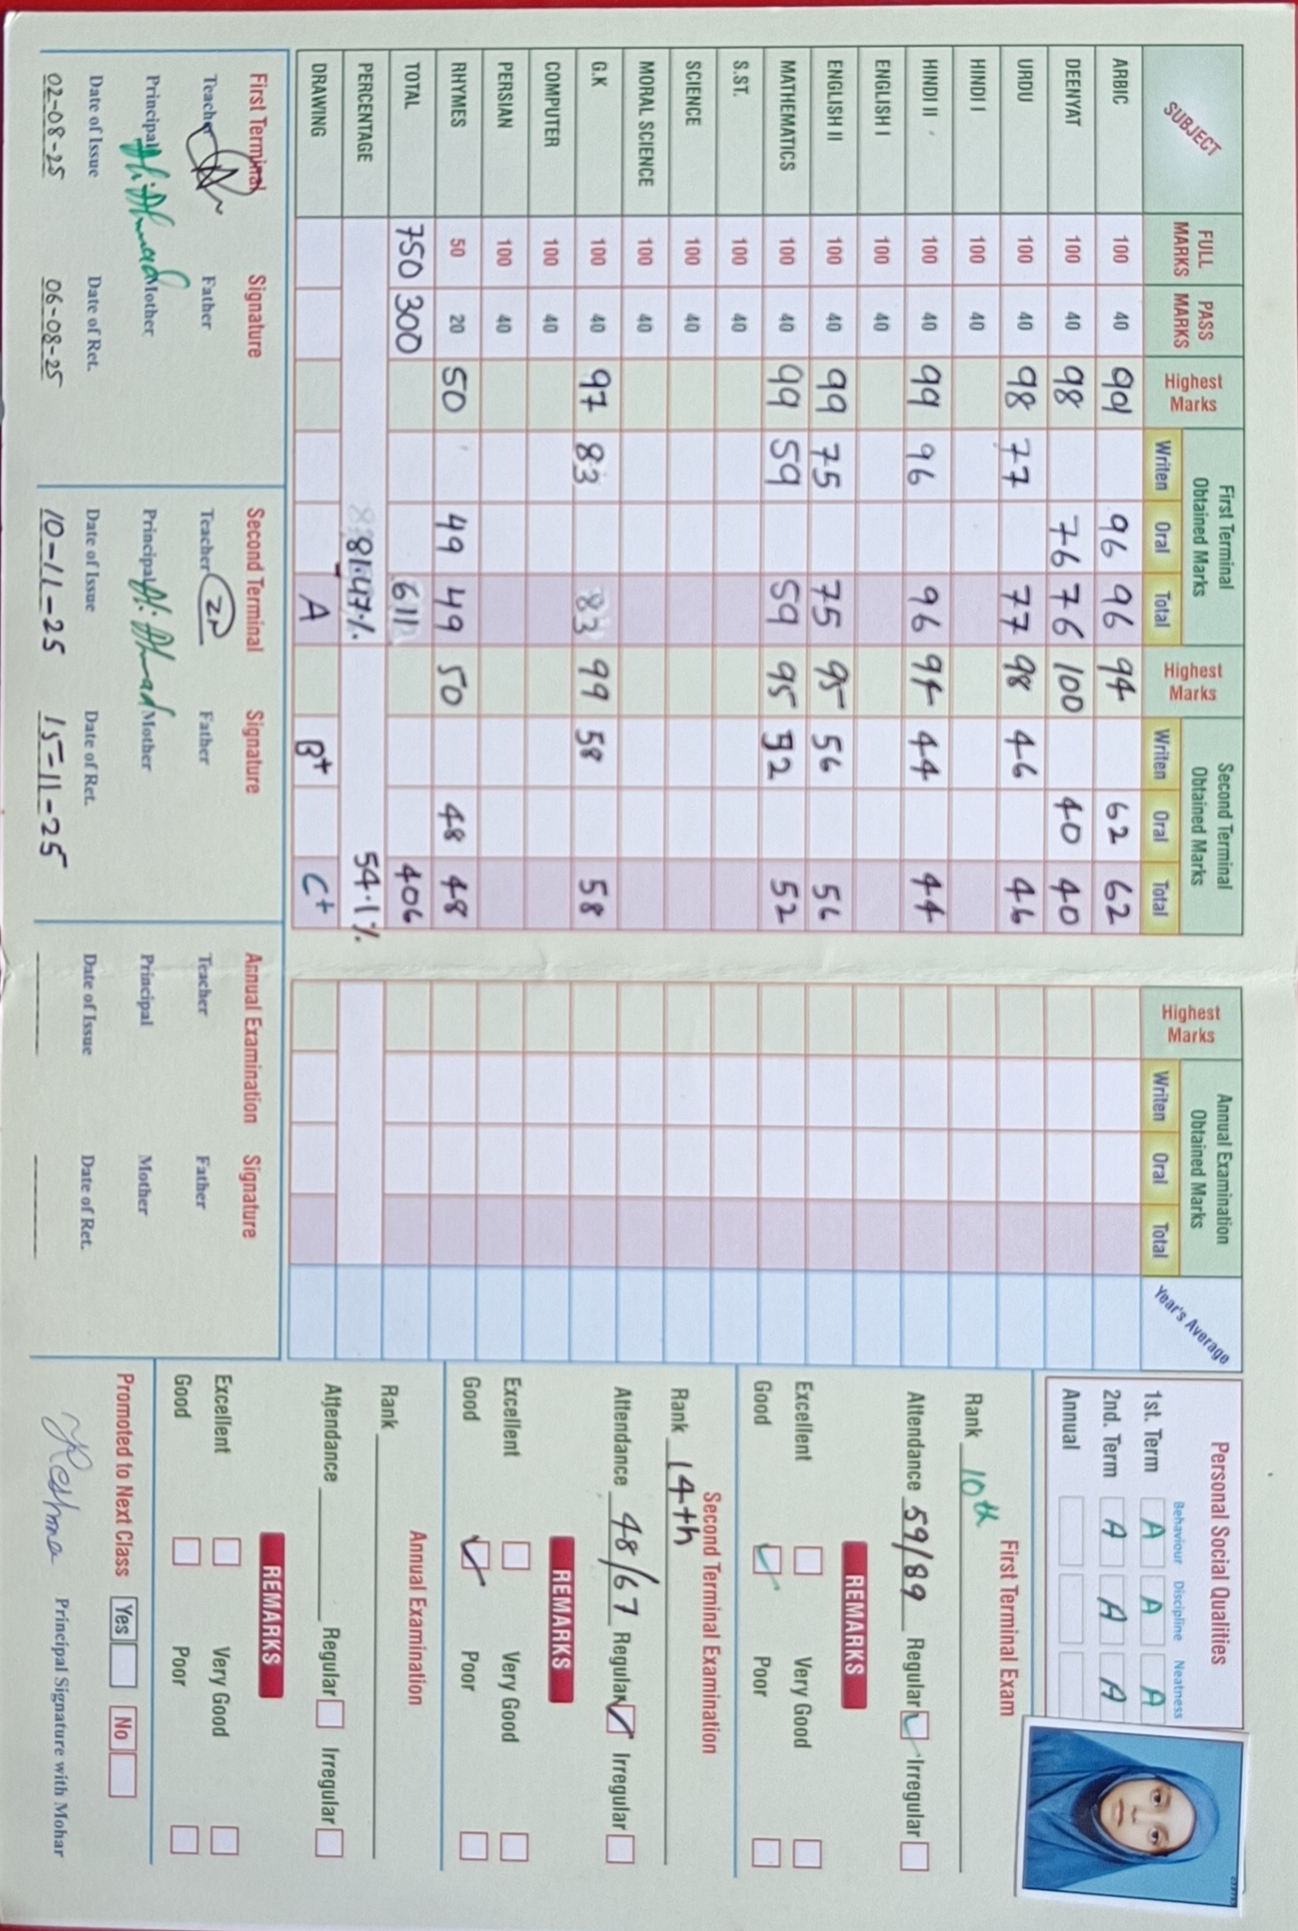 SUBJECT FULL MARKS PASS MARKS Highest Marks First Terminal Obtained Marks Writen Oral Total Highest Marks Second Terminal Obtained Marks Writen Oral Total Highest Marks Annual Examination Obtained Marks Writen Oral Total Year's Average
ARBIC 100 40 99 96 96 94 62 62
DEENYAT 100 40 98 76 76 100 40 40
URDU 100 40 98 77 77 98 46 46
HINDI I 100 40
HINDI II 100 40 99 96 96 94 44 44
ENGLISH I 100 40
ENGLISH II 100 40 99 75 75 95 56 56
MATHEMATICS 100 40 99 59 59 95 52 52
S.ST. 100 40
SCIENCE 100 40
MORAL SCIENCE 100 40
G.K 100 40 97 83 83 99 58 58
COMPUTER 100 40
PERSIAN 100 40
RHYMES 50 20 50 49 49 50 48 48
TOTAL 750 300 611 406
PERCENTAGE 81.47% 54.1%
DRAWING A B+ C+
First Terminal Signature
Teacher Father
Principal Ali Ahmad Mother
Date of Issue Date of Ret.
02-08-25 06-08-25
Second Terminal Signature
Teacher Father
Principal Ali Ahmad Mother
Date of Issue Date of Ret.
10-11-25 15-11-25
Annual Examination Signature
Teacher Father
Principal Mother
Date of Issue Date of Ret.
Personal Social Qualities
Behaviour Discipline Neatness
1st. Term A A A
2nd. Term A A A
Annual
First Terminal Exam
Rank 10th
Attendance 59/89 Regular Irregular
REMARKS
Excellent Very Good
Good Poor
Second Terminal Examination
Rank 14th
Attendance 48/67 Regular Irregular
REMARKS
Excellent Very Good
Good Poor
Annual Examination
Rank
Attendance Regular Irregular
REMARKS
Excellent Very Good
Good Poor
Promoted to Next Class Yes No
Reshma Principal Signature with Mohar